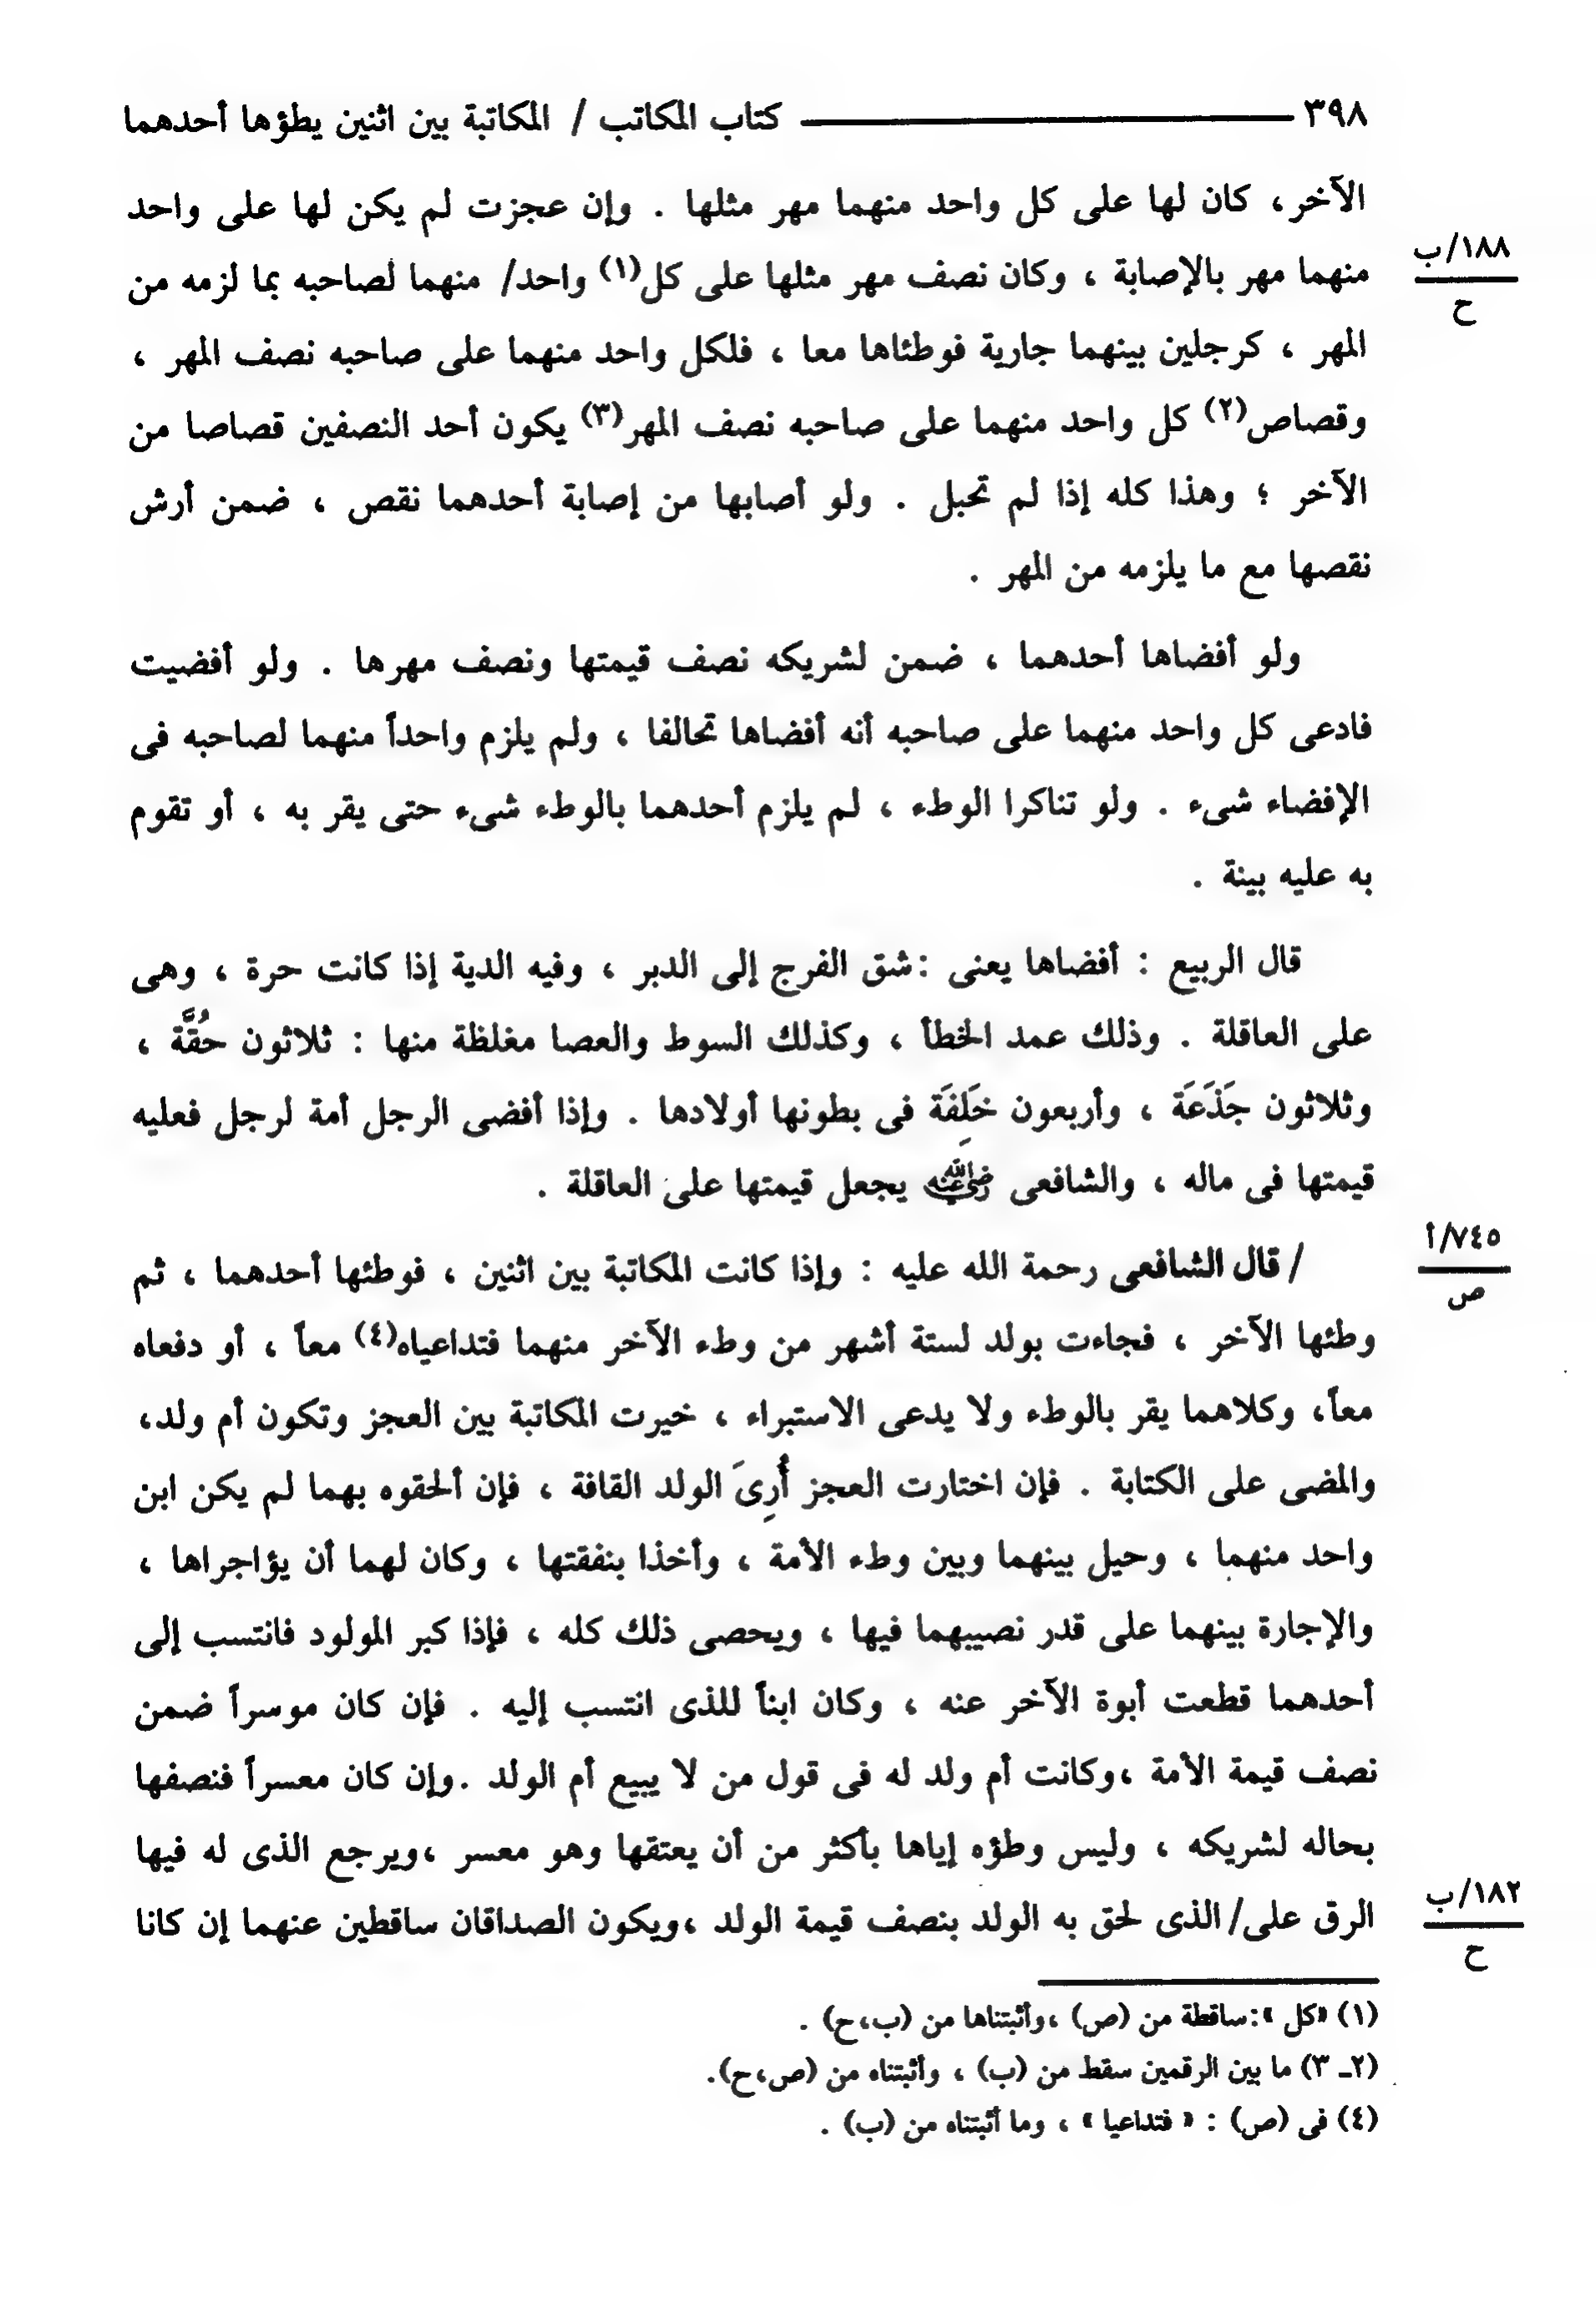 ٣٩٨ ـــــــ كتاب المكاتب / المكاتبة بين اثنين يطؤها أحدهما
الآخر، كان لها على كل واحد منهما مهر مثلها . وإن عجزت لم يكن لها على واحد
١٨٨/ب
ح
منهما مهر بالإصابة ، وكان نصف مهر مثلها على كل(١) واحد/ منهما لصاحبه بما لزمه من
المهر ، كرجلين بينهما جارية فوطئاها معا ، فلكل واحد منهما على صاحبه نصف المهر ،
وقصاص(٢) كل واحد منهما على صاحبه نصف المهر(٣) يكون أحد النصفين قصاصا من
الآخر ؛ وهذا كله إذا لم تحبل . ولو أصابها من إصابة أحدهما نقص ، ضمن أرش
نقصها مع ما يلزمه من المهر .
ولو أفضاها أحدهما ، ضمن لشريكه نصف قيمتها ونصف مهرها . ولو أفضيت
فادعى كل واحد منهما على صاحبه أنه أفضاها تحالفا ، ولم يلزم واحداً منهما لصاحبه فى
الإفضاء شىء . ولو تناكرا الوطء ، لم يلزم أحدهما بالوطء شىء حتى يقر به ، أو تقوم
به عليه بينة .
قال الربيع : أفضاها يعنى :شق الفرج إلى الدبر ، وفيه الدية إذا كانت حرة ، وهى
على العاقلة . وذلك عمد الخطأ ، وكذلك السوط والعصا مغلظة منها : ثلاثون حُقَّة ،
وثلاثون جَذَعَة ، وأربعون خَلِفَة فى بطونها أولادها . وإذا أفضى الرجل أمة لرجل فعليه
قيمتها فى ماله ، والشافعى رضي الله عنه يجعل قيمتها على العاقلة .
٧٤٥/أ
ص
/ قال الشافعى رحمة الله عليه : وإذا كانت المكاتبة بين اثنين ، فوطئها أحدهما ، ثم
وطئها الآخر ، فجاءت بولد لستة أشهر من وطء الآخر منهما فتداعياه(٤) معاً ، أو دفعاه
معاً، وكلاهما يقر بالوطء ولا يدعى الاستبراء ، خيرت المكاتبة بين العجز وتكون أم ولد،
والمضى على الكتابة . فإن اختارت العجز أُرِىَ الولد القافة ، فإن ألحقوه بهما لم يكن ابن
واحد منهما ، وحيل بينهما وبين وطء الأمة ، وأخذا بنفقتها ، وكان لهما أن يؤاجراها ،
والإجارة بينهما على قدر نصيبهما فيها ، ويحصى ذلك كله ، فإذا كبر المولود فانتسب إلى
أحدهما قطعت أبوة الآخر عنه ، وكان ابناً للذى انتسب إليه . فإن كان موسراً ضمن
نصف قيمة الأمة ،وكانت أم ولد له فى قول من لا يبيع أم الولد .وإن كان معسراً فنصفها
بحاله لشريكه ، وليس وطؤه إياها بأكثر من أن يعتقها وهو معسر ،ويرجع الذى له فيها
١٨٢/ب
ح
الرق على/ الذى لحق به الولد بنصف قيمة الولد ،ويكون الصداقان ساقطين عنهما إن كانا
(١) «كل »:ساقطة من (ص) ،وأثبتناها من (ب،ح) .
(٢ـ ٣) ما بين الرقمين سقط من (ب) ، وأثبتناه من (ص،ح).
(٤) فى (ص) : « فتداعيا » ، وما أثبتناه من (ب) .